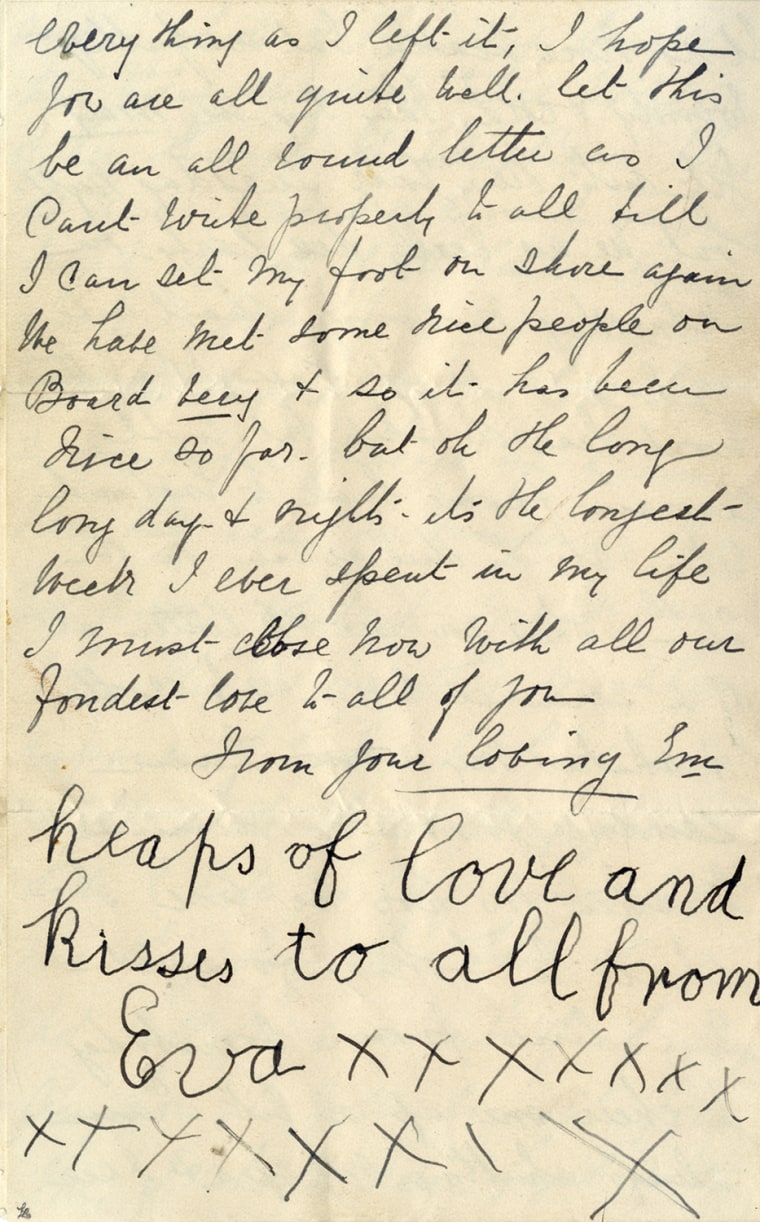 everything as I left it, I hope
you are all quite well. let this
be an all round letter as I
Cant write properly to all till
I can set my foot on shore again
We have met some nice people on
Board very & so it has been
nice so far. but oh the long
long day & nights. its the longest
week I ever spent in my life
I must close now with all our
fondest love to all of you
from your loving Em
heaps of love and
kisses to all from
Eva x x x x x x x
x x x x x x \ x